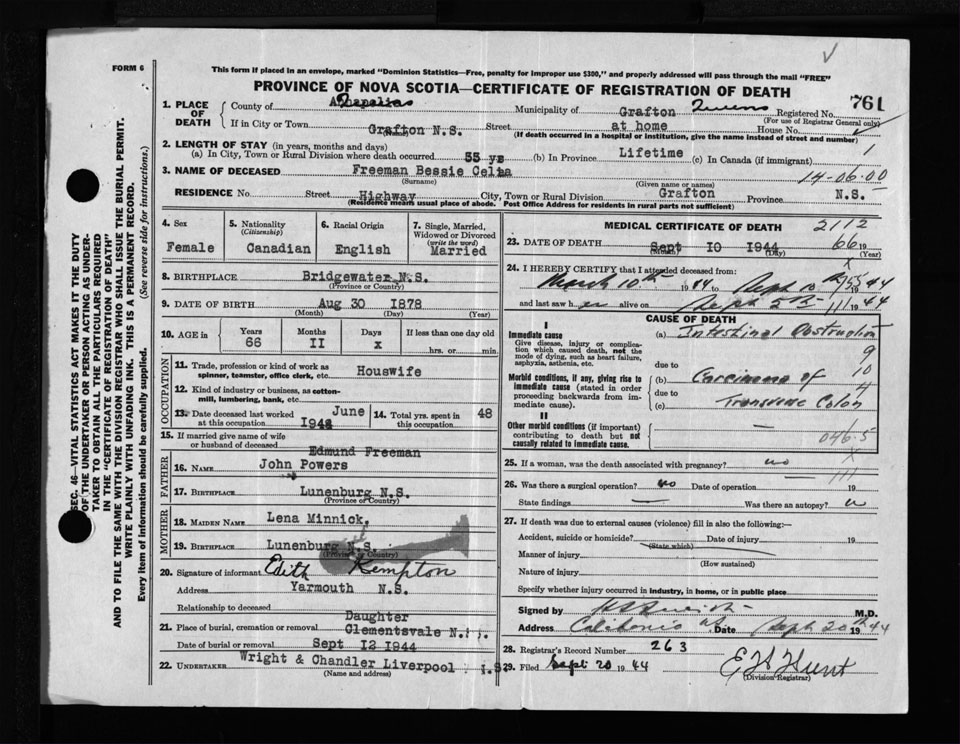 FORM 6
This form if placed in an envelope, marked "Dominion Statistics—Free, penalty for improper use $300," and properly addressed will pass through the mail "FREE"
PROVINCE OF NOVA SCOTIA—CERTIFICATE OF REGISTRATION OF DEATH
761
1. PLACE OF DEATH
County of Queens Municipality of Grafton Registered No.
(For use of Registrar General only)
If in City or Town Grafton N.S. Street at home House No.
(Name)
(If death occurred in a hospital or institution, give the name instead of street and number)
2. LENGTH OF STAY (in years, months and days)
(a) In City, Town or Rural Division where death occurred 55 ys (b) In Province Lifetime (c) In Canada (if immigrant) 1
3. NAME OF DECEASED Freeman Bessie Celia
(Surname) (Given name or names)
14-06-00
RESIDENCE No. Street Highway City, Town or Rural Division Grafton Province N.S.
(Residence means usual place of abode. Post Office Address for residents in rural parts not sufficient)
4. Sex Female
5. Nationality (Citizenship) Canadian
6. Racial Origin English
7. Single, Married, Widowed or Divorced (write the word) Married
8. BIRTHPLACE Bridgewater N.S.
(Province or Country)
9. DATE OF BIRTH Aug 30 1878
(Month) (Day) (Year)
10. AGE in Years 66 Months II Days x If less than one day old hrs. or min.
OCCUPATION
11. Trade, profession or kind of work as spinner, teamster, office clerk, etc. Houswife
12. Kind of industry or business, as cotton-mill, lumbering, bank, etc.
13. Date deceased last worked at this occupation June
14. Total yrs. spent in this occupation 48
15. If married give name of wife or husband of deceased Edmund Freeman
FATHER
16. NAME John Powers
17. BIRTHPLACE Lunenburg N.S.
(Province or Country)
MOTHER
18. MAIDEN NAME Lena Minnick,
19. BIRTHPLACE Lunenburg N.S.
(Province or Country)
20. Signature of informant Edith Kempton
Address Yarmouth N.S.
Relationship to deceased Daughter
21. Place of burial, cremation or removal Clementsvale N.S.
Date of burial or removal Sept 12 1944
22. UNDERTAKER Wright & Chandler Liverpool N.S.
(Name and address)
MEDICAL CERTIFICATE OF DEATH 2112
23. DATE OF DEATH Sept IO 1944 66 19
(Month) (Day) (Year)
24. I HEREBY CERTIFY that I attended deceased from:
March 10th 1944 to Sept 10 1944
and last saw her alive on Sept 5th 1944
CAUSE OF DEATH
I
Immediate cause
Give disease, injury or complication which caused death, not the mode of dying, such as heart failure, asphyxia, asthenia, etc.
(a) Intestinal Obstruction
9
due to 10
Morbid conditions, if any, giving rise to immediate cause (stated in order proceeding backwards from immediate cause).
(b) Carcinoma of
due to 4
(c) Transverse Colon
II
Other morbid conditions (if important) contributing to death but not causally related to immediate cause.
046.5
25. If a woman, was the death associated with pregnancy? no
26. Was there a surgical operation? no Date of operation 19
State findings Was there an autopsy?
27. If death was due to external causes (violence) fill in also the following:—
Accident, suicide or homicide? Date of injury 19
(State which)
Manner of injury
(How sustained)
Nature of injury
Specify whether injury occurred in industry, in home, or in public place
Signed by M.D.
Address Caledonia NS Date Sept 20th 1944
28. Registrar's Record Number 263
29. Filed Sept 20 1944 E H Hunt
(Division Registrar)
SEC. 46—VITAL STATISTICS ACT MAKES IT THE DUTY
OF THE UNDERTAKER OR PERSON ACTING AS UNDER-
TAKER TO OBTAIN ALL THE PARTICULARS REQUIRED
IN THE "CERTIFICATE OF REGISTRATION OF DEATH"
AND TO FILE THE SAME WITH THE DIVISION REGISTRAR WHO SHALL ISSUE THE BURIAL PERMIT.
WRITE PLAINLY WITH UNFADING INK. THIS IS A PERMANENT RECORD.
Every item of information should be carefully supplied. (See reverse side for instructions.)